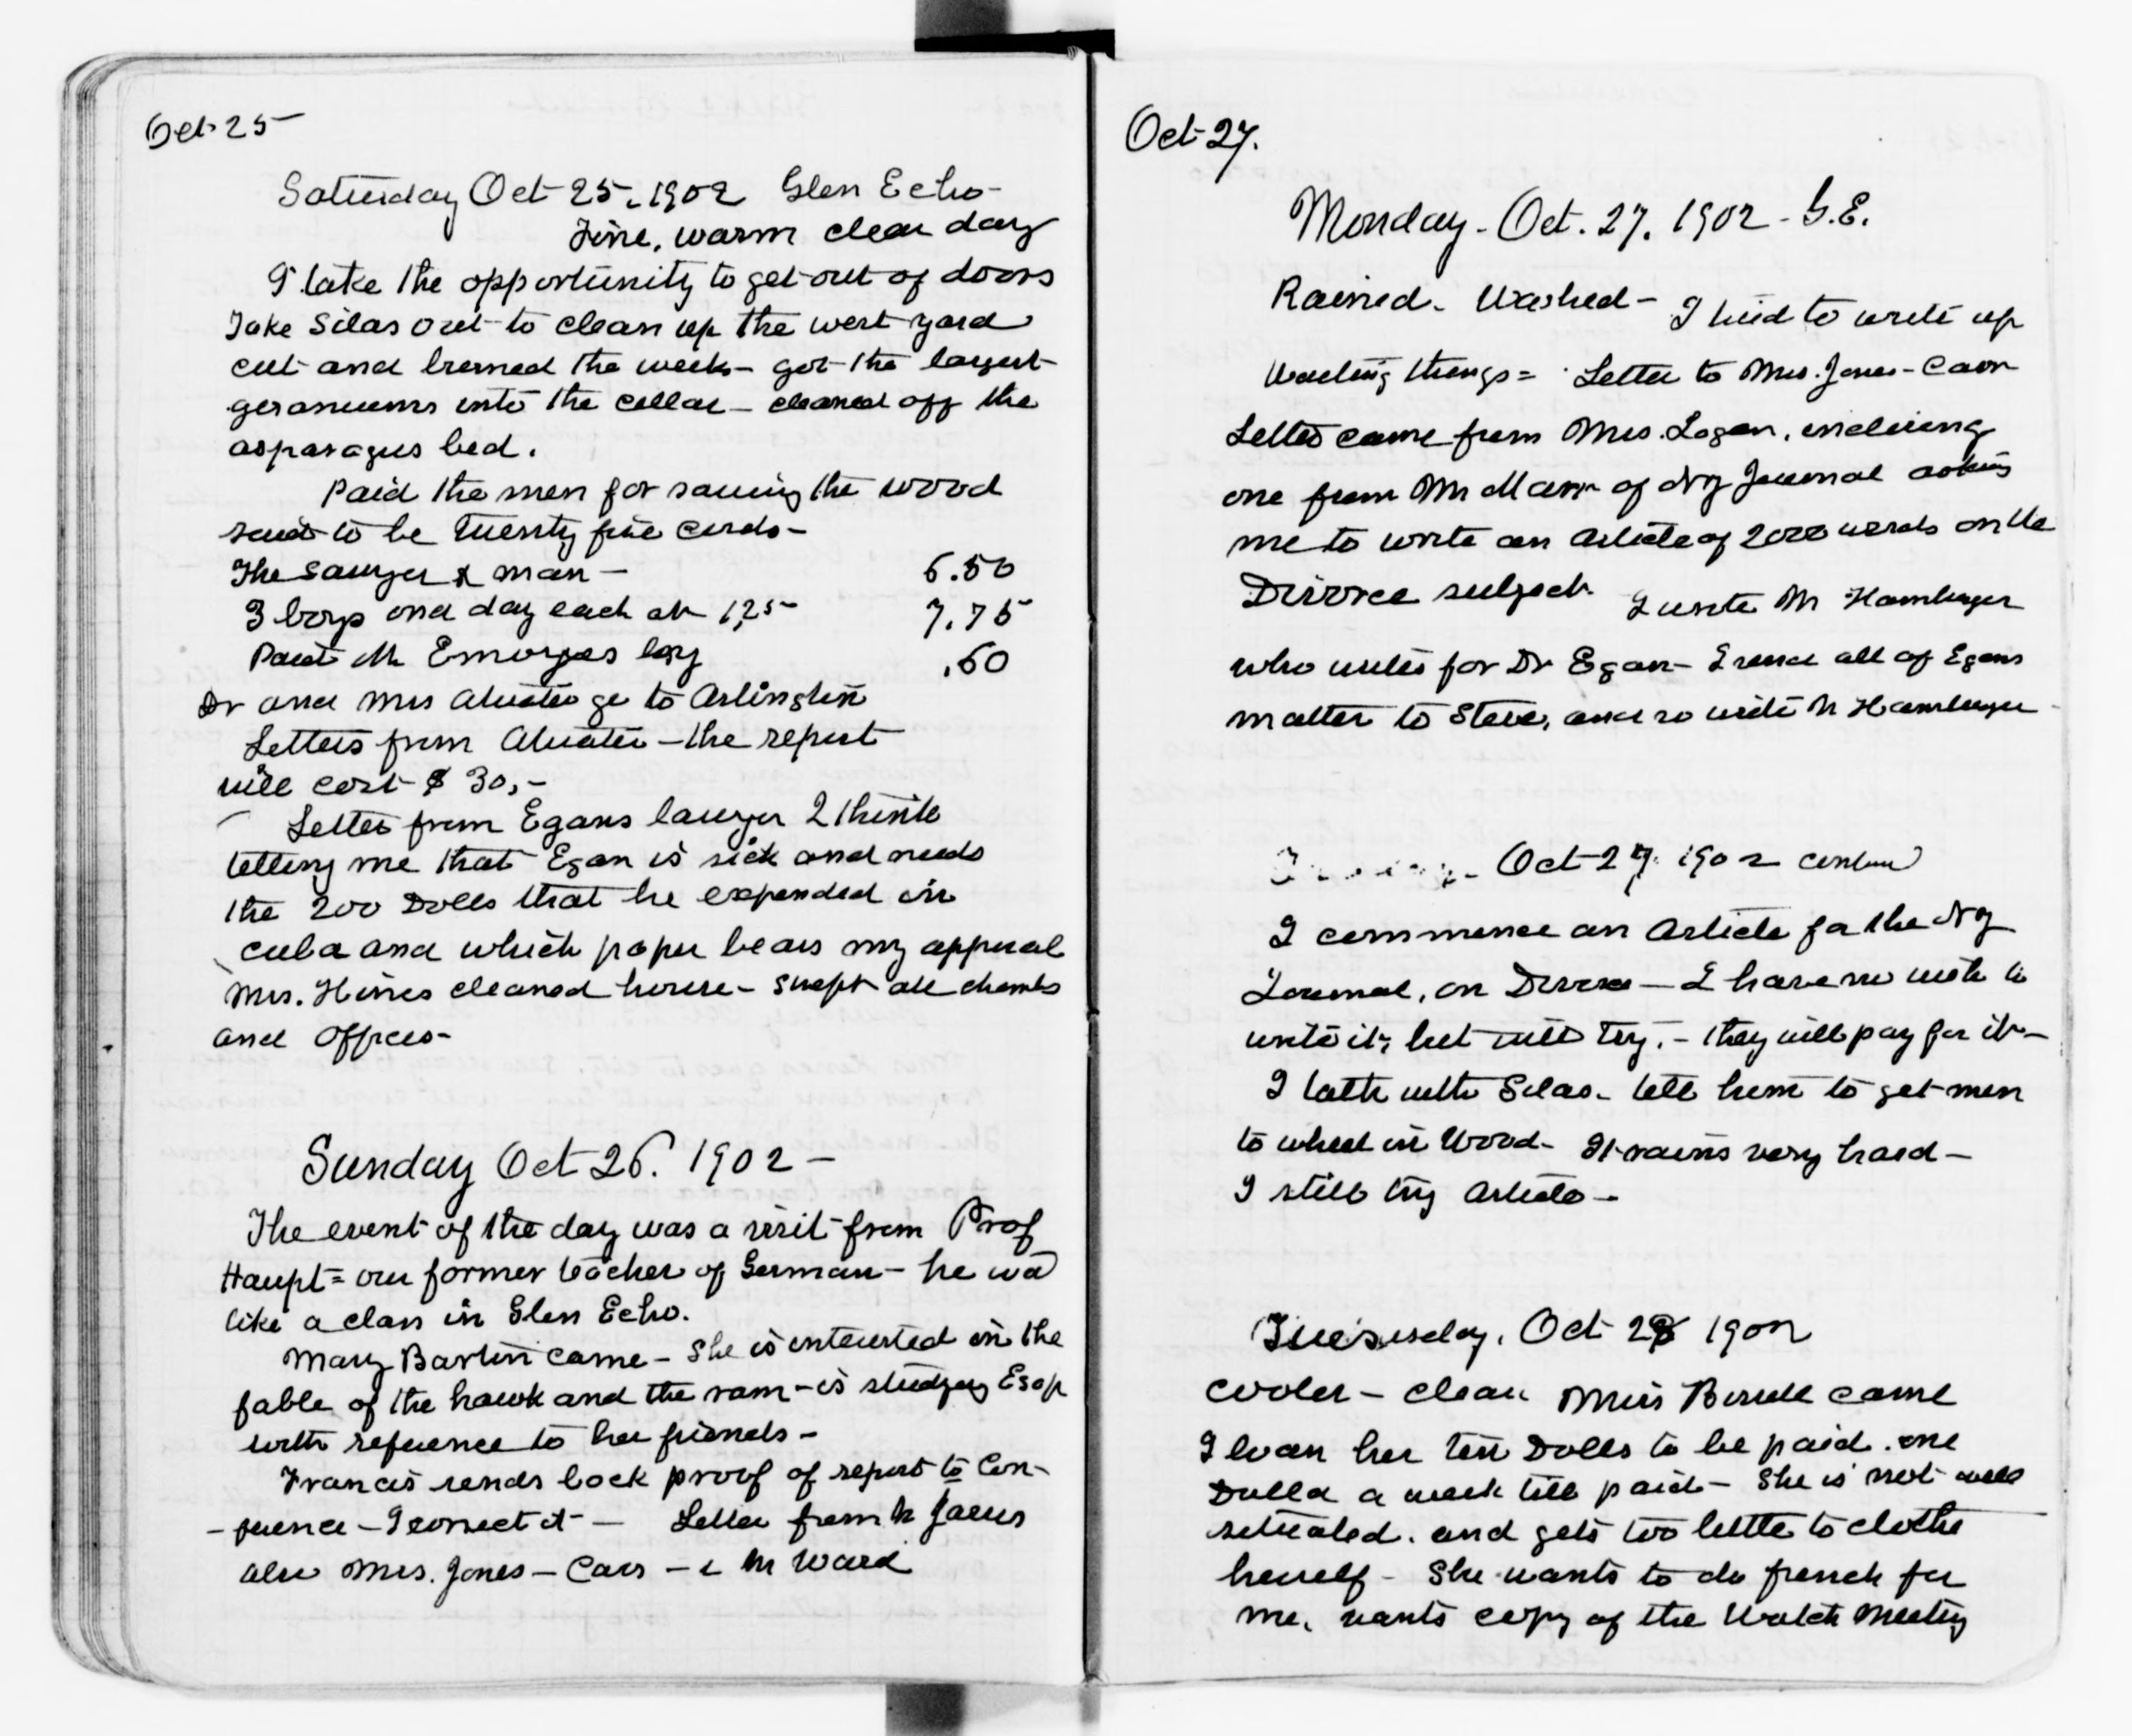 Oct 25
Saturday Oct 25, 1902 Glen Echo -
Fine, warm clear day
I take the opportunity to get out of doors
Take Silas out to clean up the west yard
cut and burned the weeds - got the largest
geraniums into the cellar - cleaned off the
asparagus bed.
Paid the men for sawing the wood
said to be twenty five cords -
The sawyer & man - 6.50
3 boys one day each at 1,25 7.75
Paid Mr boy .60
Dr and Mrs Atwater go to Arlington
Letters from Atwater - the report
will cost $ 30, -
Letter from Egans lawyer I think
telling me that Egan is sick and needs
the 200 Dolls that he expended in
Cuba and which paper bears my approval
Mrs. Hines cleaned house - swept all chambs
and offices -
Sunday Oct 26. 1902 -
The event of the day was a visit from Prof
Haupt = our former teacher of German - he wd
like a class in Glen Echo.
Mary Bartin came - She is interested in the
fable of the hawk and the ram - is studying Esop
with reference to her friends -
Francis sends back proof of report to Con-
- ference - I correct it - Letter from
also Mrs. Jones - Cars - & Mr Ward
Oct 27.
Monday - Oct. 27. 1902 - G.E.
Rained - Washed - I tried to write up
waiting things = Letter to Mrs. Jones -
Letter came from Mrs. Logan, inclosing
one from Mr Marr of NY Journal asking
me to write an Article of 2000 words on the
Divorce subject. I write Mr Hamburger
who writes for Dr Egan - I send all of Egans
matter to Steve, and so write Mr Hamburger
Oct 27. 1902 continu
I commence an Article for the NY
Journal, on Divorce - I have no wish to
write it, but will try. - they will pay for it -
I talk with Silas - tell him to get men
to wheel in Wood - It rains very hard -
I still try Article -
Tuesday, Oct 28 1902
cooler - clear Miss came
I loan her ten Dolls to be paid one
Dolla a week till paid - She is not well
situated, and gets too little to clothe
herself - She wants to do french for
me, wants copy of the Watch Meeting